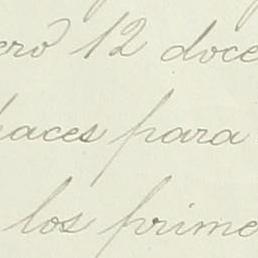 ero 12 doce
paces para
los prime